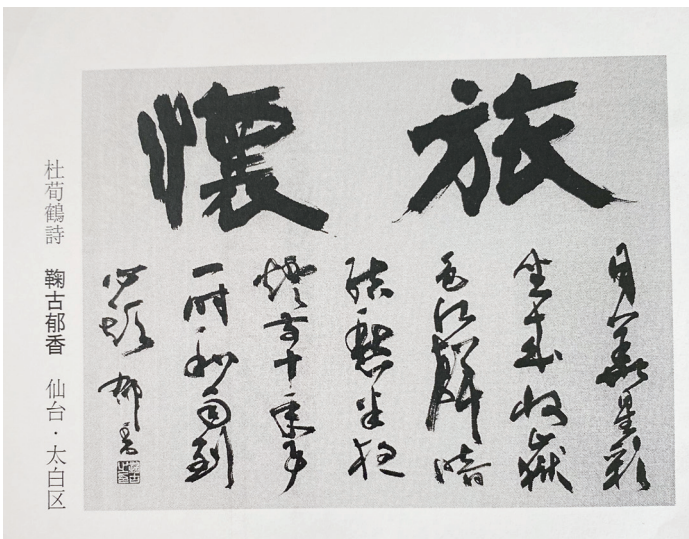 旅懷
月華星彩
坐來收嶽
色江聲暗
結愁半夜
燈前十年事
一時和雨到
心頭 郁香
杜荀鶴詩 鞠古郁香 仙台・太白区